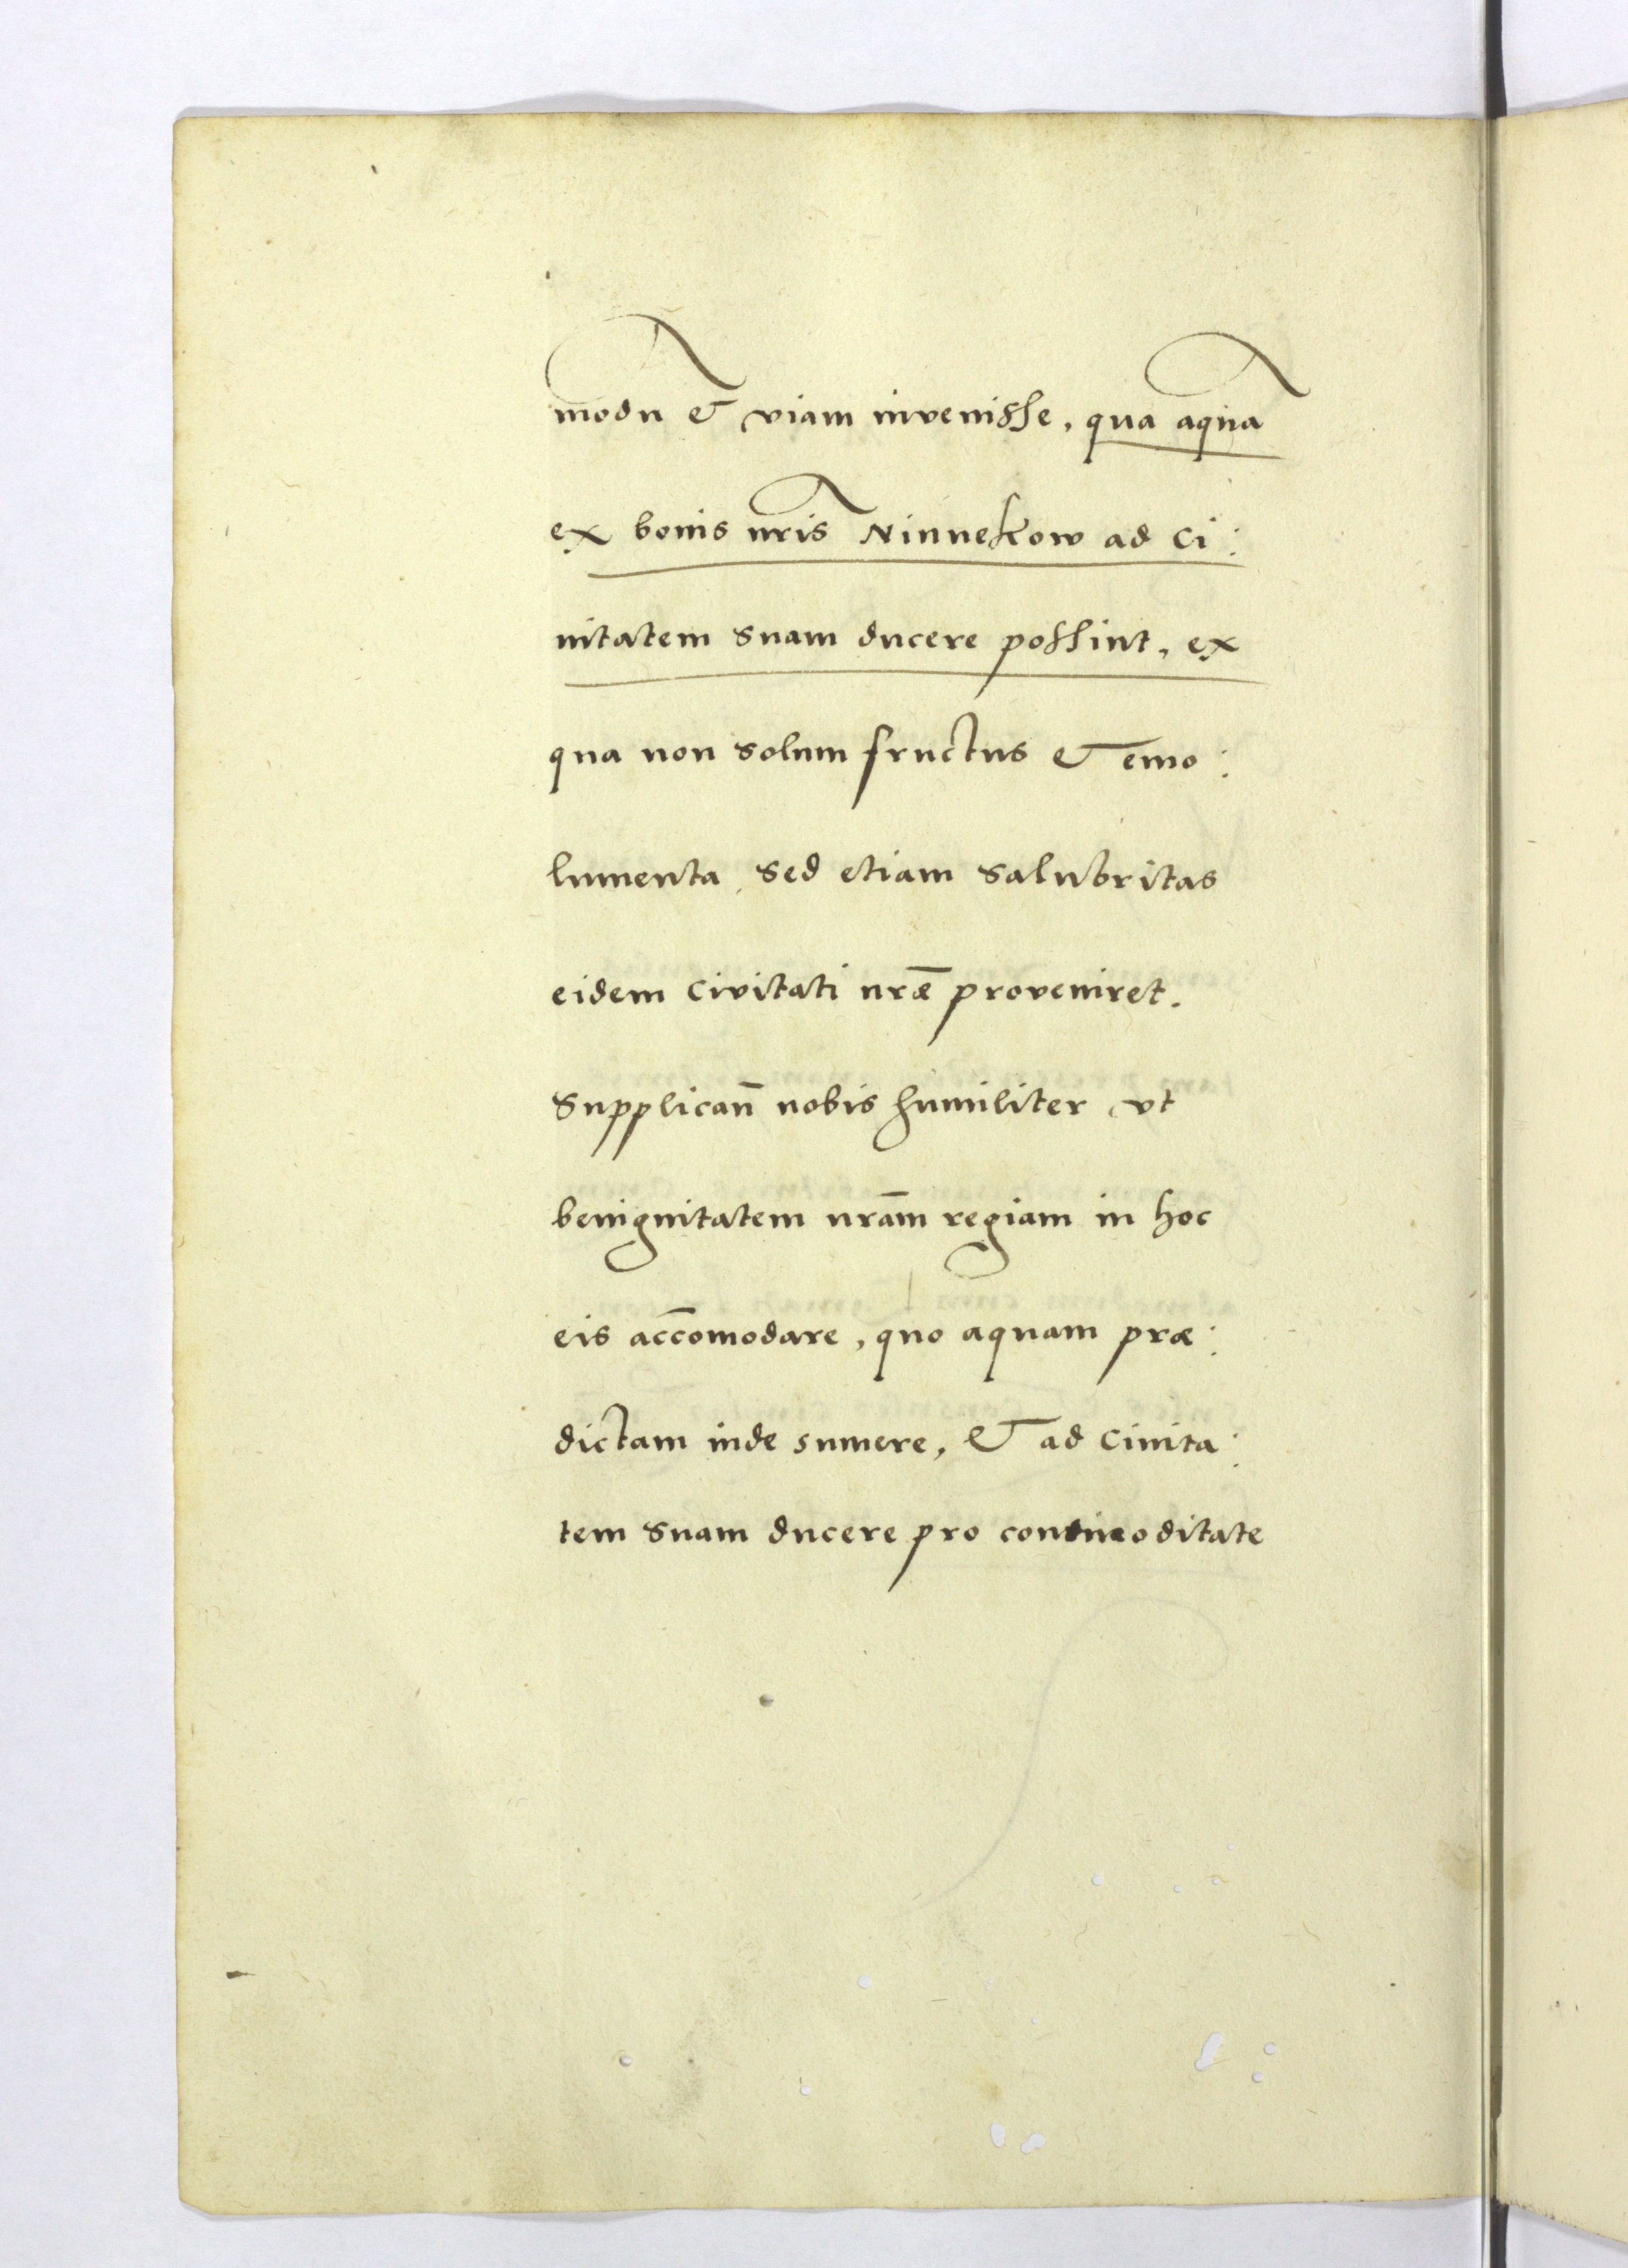 modū & viam invenisse, qua aquā
ex bonis nr̄is Ninnekow ad Ci:
uitatem suam ducere possint, ex
qua non solum fructus & emo:
lumenta, sed etiam salubritas
eidem Civitati nr̄æ proveniret.
Supplican̄ nobis humiliter vt
benignitatem nr̄am regiam in hoc
eis accōmodare, quo aquam præ:
dictam inde sumere, & ad Ciuita:
tem suam ducere pro commoditate